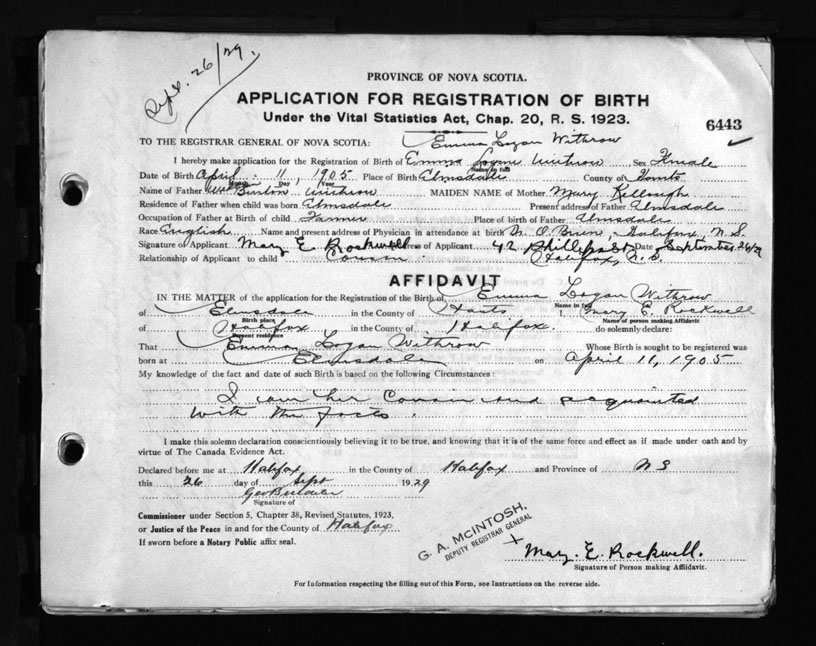 Sept. 26/29.
PROVINCE OF NOVA SCOTIA.
APPLICATION FOR REGISTRATION OF BIRTH
Under the Vital Statistics Act, Chap. 20, R. S. 1923.
6443
TO THE REGISTRAR GENERAL OF NOVA SCOTIA: Emma Logan Withrow
I hereby make application for the Registration of Birth of Emma Logan Withrow Sex Female
Name in full
Date of Birth April 11, 1905 Place of Birth Elmsdale County of Hants
Month Day Year
Name of Father Burton Withrow MAIDEN NAME of Mother Mary Kellough
Residence of Father when child was born Elmsdale Present address of Father Elmsdale
Occupation of Father at Birth of child Farmer Place of birth of Father Elmsdale
Race English Name and present address of Physician in attendance at birth Dr. O. Brien, Halifax, N. S.
Signature of Applicant Mary E Rockwell Address of Applicant 42 Date September 26/29
Relationship of Applicant to child Cousin. Halifax, N. S.
AFFIDAVIT
IN THE MATTER of the application for the Registration of the Birth of Emma Logan Withrow
Name in full
of Elmsdale in the County of Hants I, Mary E. Rockwell
Birth place Name of person making Affidavit
of Halifax in the County of Halifax. do solemnly declare:
Present residence
That Emma Logan Withrow Whose Birth is sought to be registered was
born at Elmsdale on April 11, 1905
My knowledge of the fact and date of such Birth is based on the following Circumstances:
I am her Cousin and acquainted
with the facts.
I make this solemn declaration conscientiously believing it to be true, and knowing that it is of the same force and effect as if made under oath and by
virtue of The Canada Evidence Act.
Declared before me at Halifax in the County of Halifax and Province of N S
this 26 day of Sept 1929
Signature of
Commissioner under Section 5, Chapter 38, Revised Statutes, 1923,
or Justice of the Peace in and for the County of Halifax
If sworn before a Notary Public affix seal.
G. A. McINTOSH,
DEPUTY REGISTRAR GENERAL
x Mary. E. Rockwell.
Signature of Person making Affidavit.
For Information respecting the filling out of this Form, see Instructions on the reverse side.